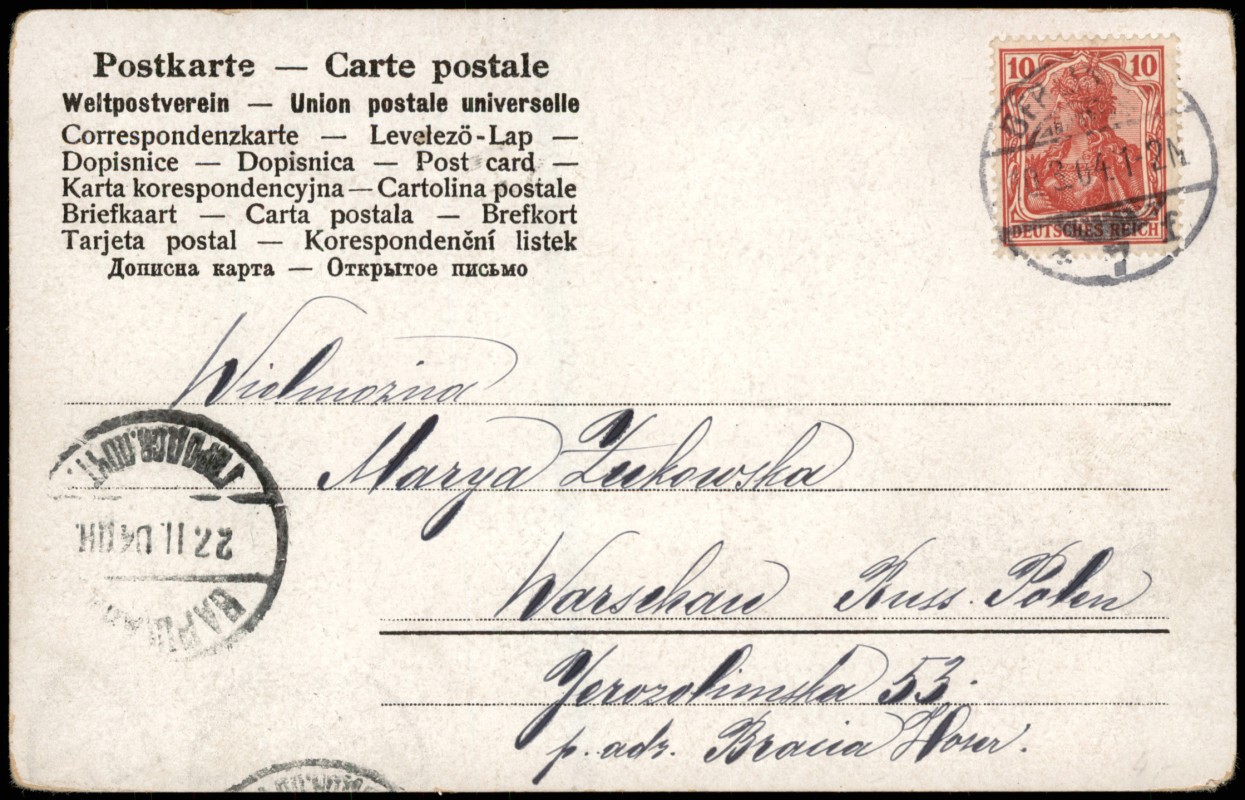 Postkarte — Carte postale
Weltpostverein — Union postale universelle
Correspondenzkarte — Levelező-Lap —
Dopisnice — Dopisnica — Post card —
Karta korespondencyjna — Cartolina postale
Briefkaart — Carta postala — Brefkort
Tarjeta postal — Korespondenční listek
Дописна карта — Открытое письмо
10 10
3.04.1-2N
DEUTSCHES REICH
* 7 f
Wielmożna
Marya Żukowska
Warschau Russ. Polen
Jerozolimska 53.
p. adr. Bracia Hoser.
27.II.04